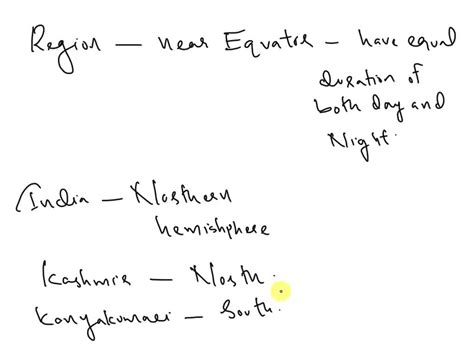 Region — near Equator — have equal
duration of
both day and
Night.
India — Northern
hemishphere
Kashmir — North.
Kanyakumari — South.